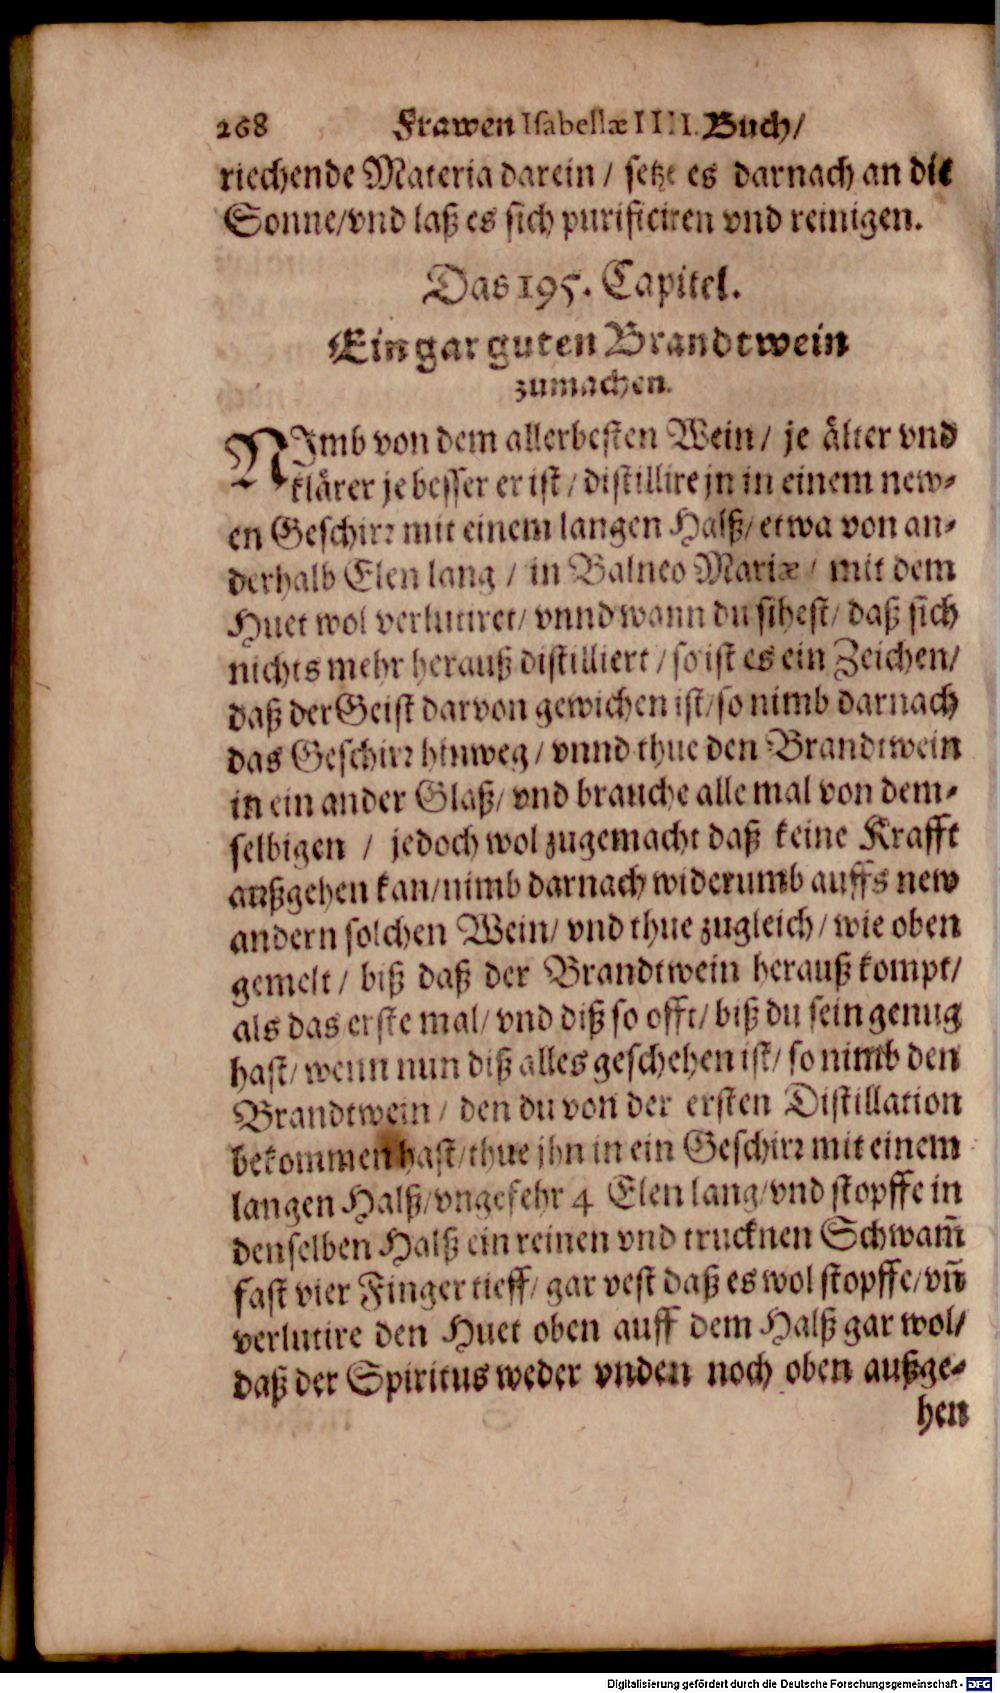 268 Frawen Isabellæ IIII. Buch/
riechende Materia darein / setze es darnach an die
Sonne/vnd laß es sich purificiren vnd reinigen.
Das 195. Capitel.
Ein gar guten Brandtwein
zumachen.
NImb von dem allerbesten Wein / je älter vnd
klärer je besser er ist / distillire jn in einem new-
en Geschirr mit einem langen Halß/etwa von an-
derhalb Elen lang / in Balneo Mariæ / mit dem
Huet wol verlutiret/ vnnd wann du sihest/ daß sich
nichts mehr herauß distilliert / so ist es ein Zeichen/
daß der Geist darvon gewichen ist/so nimb darnach
das Geschirr hinweg / vnnd thue den Brandtwein
in ein ander Glaß/ vnd brauche alle mal von dem-
selbigen / jedoch wol zugemacht daß keine Krafft
außgehen kan/nimb darnach widerumb auffs new
andern solchen Wein/ vnd thue zugleich/ wie oben
gemelt / biß daß der Brandtwein herauß kompt/
als das erste mal/ vnd diß so offt/ biß du sein genug
hast/ wenn nun diß alles geschehen ist/ so nimb den
Brandtwein / den du von der ersten Distillation
bekommen hast/thue jhn in ein Geschirr mit einem
langen Halß/vngefehr 4 Elen lang/vnd stopffe in
denselben Halß ein reinen vnd trucknen Schwam̄
fast vier Finger tieff/ gar vest daß es wol stopffe/vn̄
verlutire den Huet oben auff dem Halß gar wol/
daß der Spiritus weder vnden noch oben außge-
hen
Digitalisierung gefördert durch die Deutsche Forschungsgemeinschaft - DFG